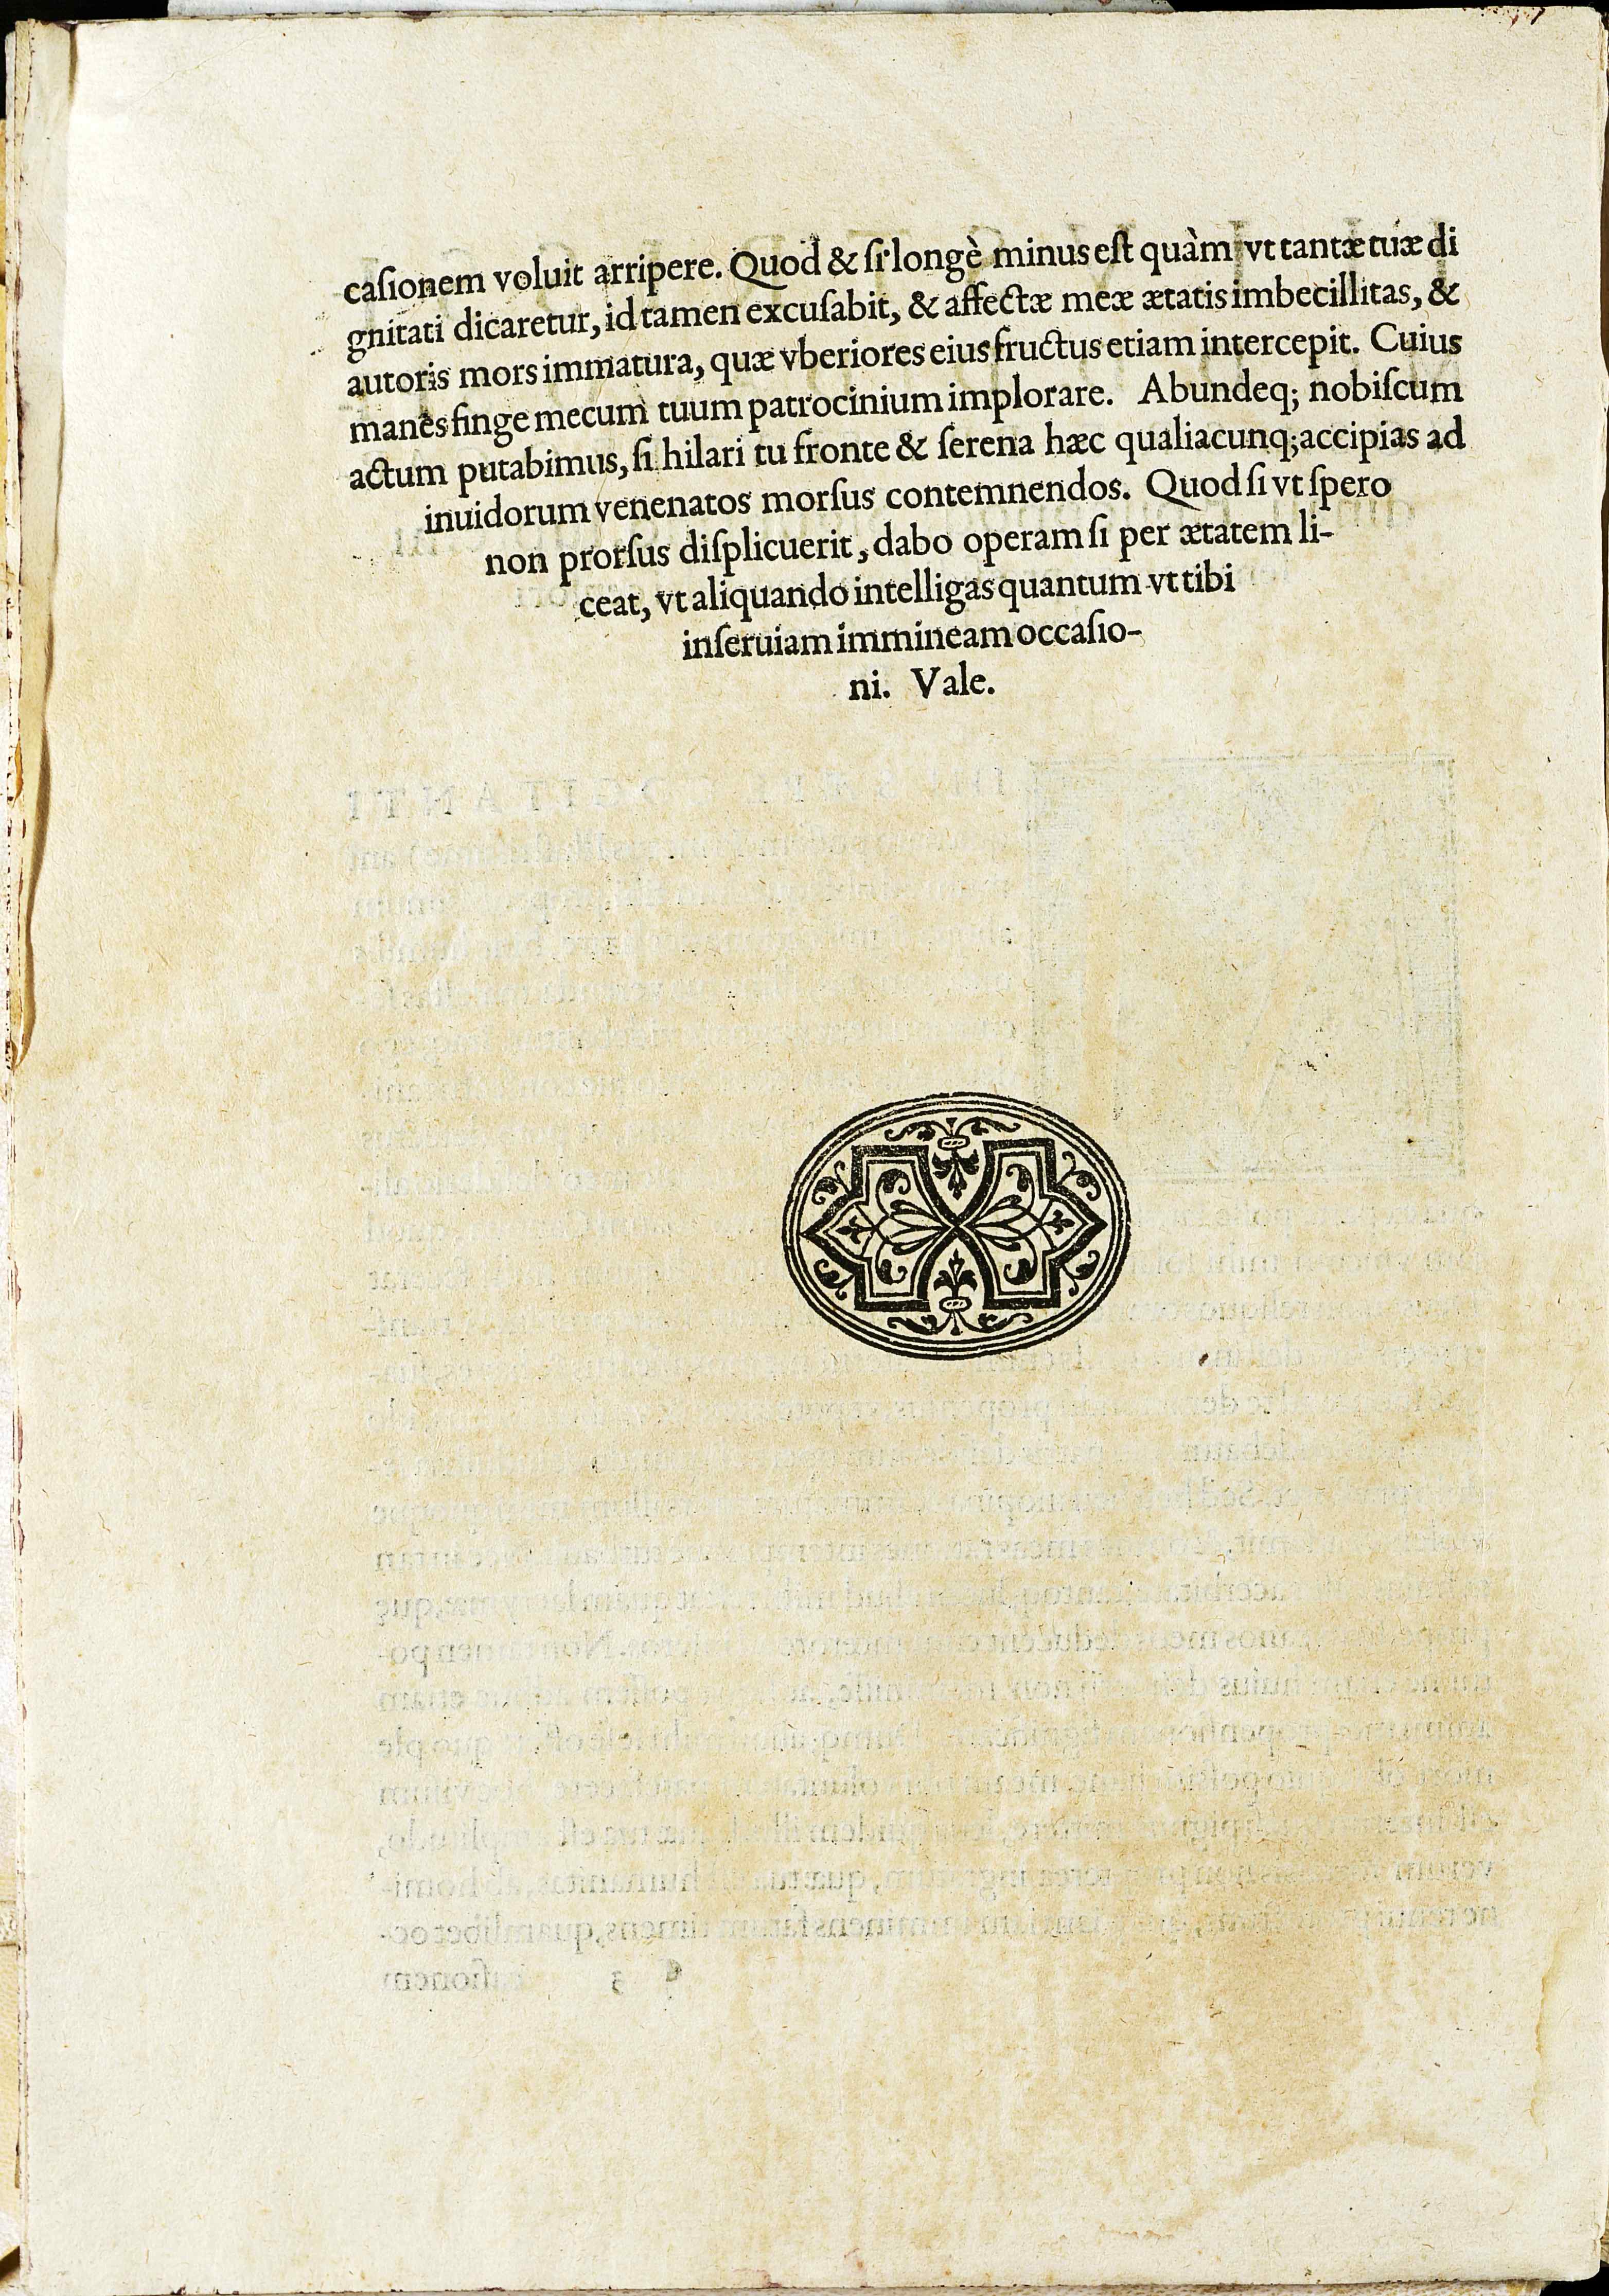 caſionem voluit arripere. Quod & ſi longè minus eſt quàm vt tantæ tuæ di
gnitati dicaretur, id tamen excuſabit, & affectæ meæ ætatis imbecillitas, &
autoris mors immatura, quæ vberiores eius fructus etiam intercepit. Cuius
manes finge mecum tuum patrocinium implorare. Abundeq; nobiſcum
actum putabimus, ſi hilari tu fronte & ſerena hæc qualiacunq; accipias ad
inuidorum venenatos morſus contemnendos. Quod ſi vt ſpero
non prorſus diſplicuerit, dabo operam ſi per ætatem li-
ceat, vt aliquando intelligas quantum vt tibi
inſeruiam immineam occaſio-
ni. Vale.